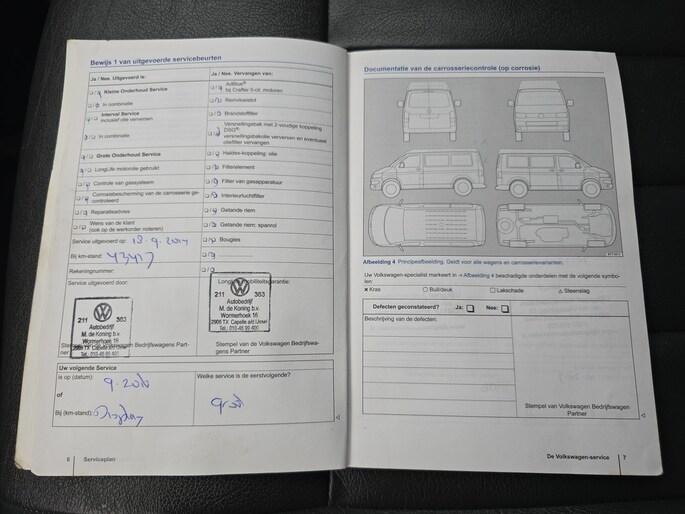 Bewijs 1 van uitgevoerde servicebeurten
Ja / Nee. Uitgevoerd is:
Kleine Onderhoud Service
In combinatie
Interval Service
inclusief olie verversen
In combinatie
Grote Onderhoud Service
LongLife motorolie gebruikt
Controle van gassysteem
Corrosiebescherming van de carrosserie ge-
controleerd
Reparatieadvies
Wens van de klant
(ook op de werkorder noteren)
Service uitgevoerd op: 18.9.2014
Bij km-stand:
Rekeningnummer:
Service uitgevoerd door:
211 363
Autobedrijf
M. de Koning b.v.
Wormerhoek 16
2905 TX Capelle a/d IJssel
Stempel van de Volkswagen Bedrijfswagens Part-
ner
Ja / Nee. Vervangen van:
AdBlue®
bij Crafter 5-cil. motoren
Remvloeistof
Brandstoffilter
Versnellingsbak met 2-voudige koppeling
DSG®:
versnellingsbakolie verversen en eventueel
oliefilter vervangen
Haldex-koppeling: olie
Filterelement
Filter van gasapparatuur
Interieurluchtfilter
Getande riem
Getande riem: spanrol
Bougies
211 363
Autobedrijf
M. de Koning b.v.
Wormerhoek 16
2905 TX Capelle a/d IJssel
Stempel van de Volkswagen Bedrijfswa-
gens Partner
Uw volgende Service
is op (datum):
of
Bij (km-stand): Display
Welke service is de eerstvolgende?
groot
6 Serviceplan
Documentatie van de carrosseriecontrole (op corrosie)
Afbeelding 4 Principeafbeelding. Geldt voor alle wagens en carrosserievarianten.
Uw Volkswagen-specialist markeert in → Afbeelding 4 beschadigde onderdelen met de volgende symbo-
len:
× Kras
Buil/deuk
Lakschade
Steenslag
Defecten geconstateerd? Ja: Nee:
Beschrijving van de defecten:
Stempel van Volkswagen Bedrijfswagen
Partner
De Volkswagen-service 7